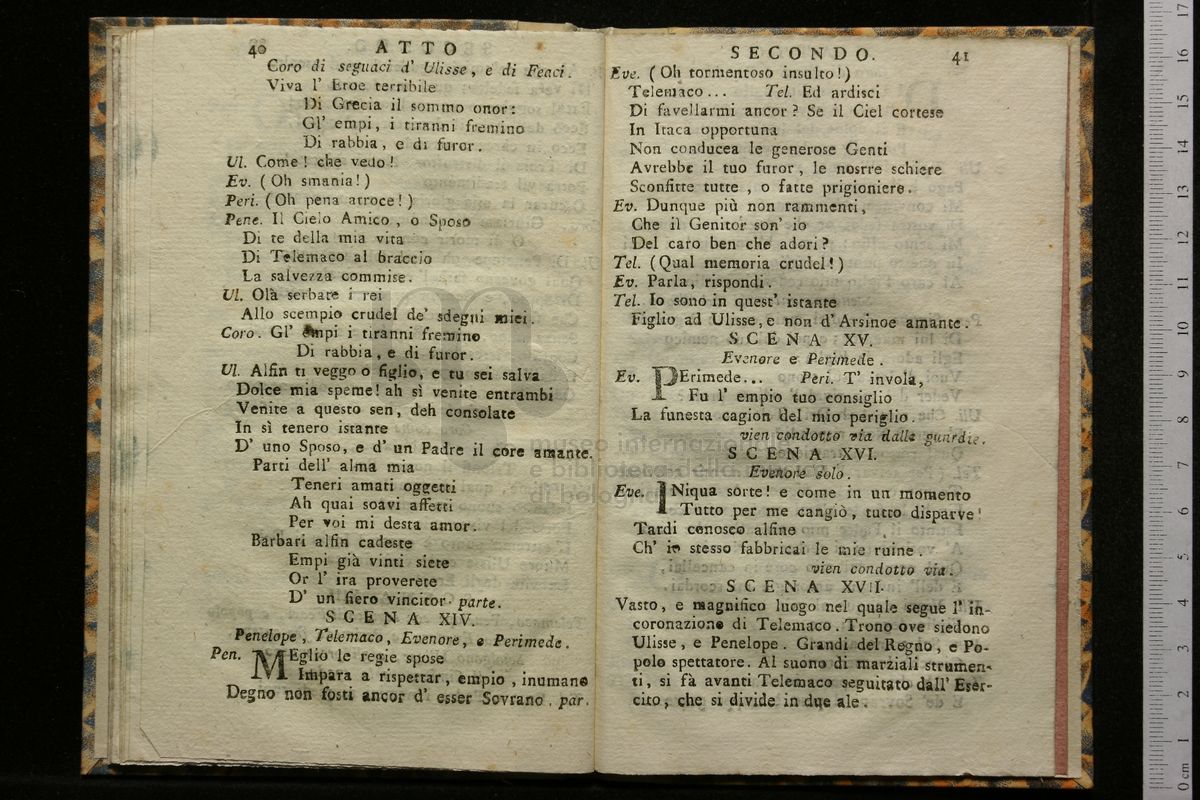 40 ATTO
Coro di seguaci d' Ulisse, e di Feaci.
Viva l' Eroe terribile
Di Grecia il sommo onor:
Gl' empi, i tiranni fremino
Di rabbia, e di furor.
Ul. Come! che vedo!
Ev. (Oh smania!)
Peri. (Oh pena atroce!)
Pene. Il Cielo Amico, o Sposo
Di te della mia vita
Di Telemaco al braccio
La salvezza commise.
Ul. Olà serbate i rei
Allo scempio crudel de' sdegni miei.
Coro. Gl' empi i tiranni fremino
Di rabbia, e di furor.
Ul. Alfin ti veggo o figlio, e tu sei salva
Dolce mia speme! ah sì venite entrambi
Venite a questo sen, deh consolate
In sì tenero istante
D' uno Sposo, e d' un Padre il core amante.
Parti dell' alma mia
Teneri amati oggetti
Ah quai soavi affetti
Per voi mi desta amor.
Barbari alfin cadeste
Empi già vinti siete
Or l' ira proverete
D' un fiero vincitor. parte.
SCENA XIV.
Penelope, Telemaco, Evenore, e Perimede.
Pen. MEglio le regie spose
Impara a rispettar, empio, inumano
Degno non fosti ancor d' esser Sovrano. par.
SECONDO. 41
Eve. (Oh tormentoso insulto!)
Telemaco... Tel. Ed ardisci
Di favellarmi ancor? Se il Ciel cortese
In Itaca opportuna
Non conducea le generose Genti
Avrebbe il tuo furor, le nosrre schiere
Sconfitte tutte, o fatte prigioniere.
Ev. Dunque più non rammenti,
Che il Genitor son' io
Del caro ben che adori?
Tel. (Qual memoria crudel!)
Ev. Parla, rispondi.
Tel. Io sono in quest' istante
Figlio ad Ulisse, e non d' Arsinoe amante.
SCENA XV.
Evenore e Perimede.
Ev. PErimede... Peri. T' invola,
Fu l' empio tuo consiglio
La funesta cagion del mio periglio.
vien condotto via dalle guardie.
SCENA XVI.
Evenore solo.
Eve. INiqua sorte! e come in un momento
Tutto per me cangiò, tutto disparve!
Tardi conosco alfine
Ch' io stesso fabbricai le mie ruine.
vien condotto via.
SCENA XVII.
Vasto, e magnifico luogo nel quale segue l' in-
coronazione di Telemaco. Trono ove siedono
Ulisse, e Penelope. Grandi del Regno, e Po-
polo spettatore. Al suono di marziali strumen-
ti, si fà avanti Telemaco seguitato dall' Eser-
cito, che si divide in due ale.
museo internazionale
e biblioteca della musica
di bologna
0 cm 1 2 3 4 5 6 7 8 9 10 11 12 13 14 15 16 17